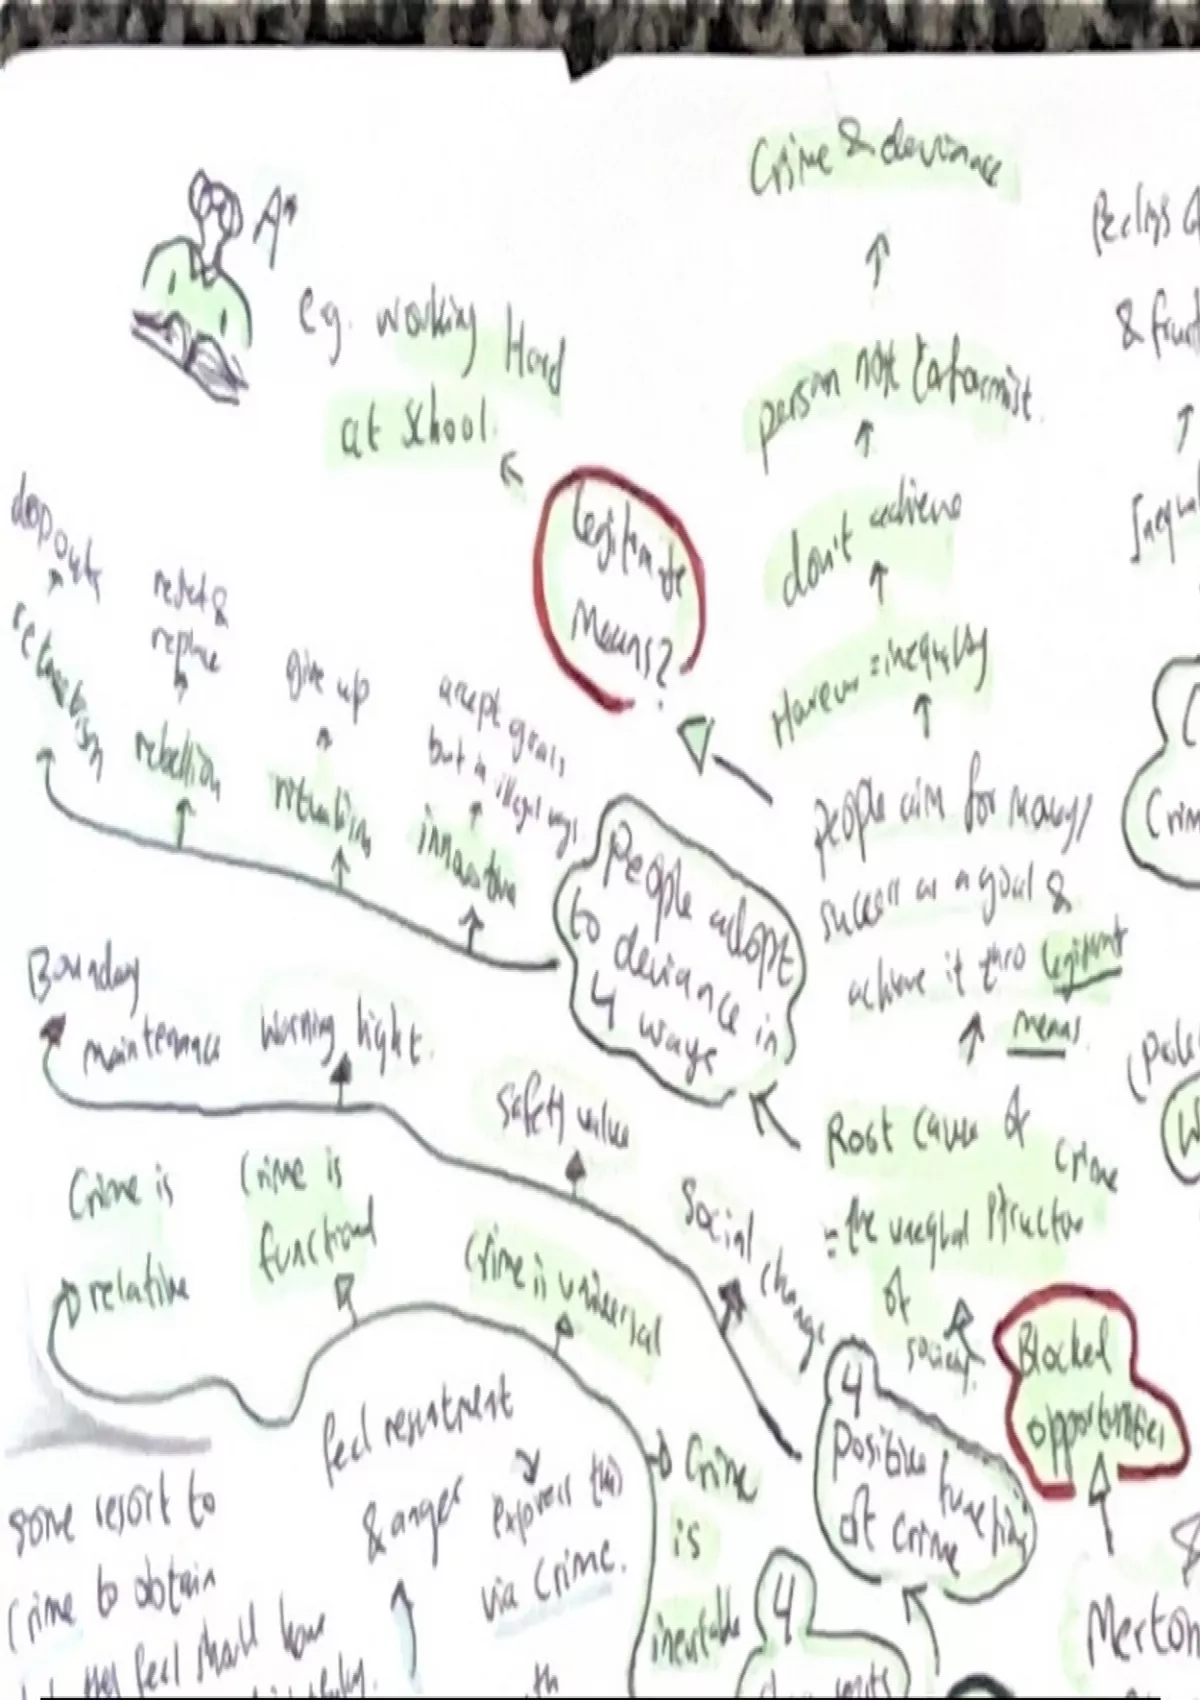 Crime & deviance
A*
e.g. working Hard
at school.
person not Conformist.
don't achieve
However = inequality
Legitimate
Means?
people aim for money/
success as a goal &
achieve it thro legitimat
means.
dropouts
retreatism
reject &
replace
rebellion
give up
ritualism
accept goals
but in illegal ways
innovation
People adopt
to deviance in
4 ways
Root cause of
crime
= the unequal structure
of
society.
Blocked
opportunities
Merton
Boundary
maintenance
Warning light.
safety valve
Social change
4
positive function
of crime
Crime is
relative
Crime is
functional
Crime is universal
Crime
is
inevitable
4
feel resentment
& anger
express this
via crime.
some resort to
crime to obtain
feel shall have
Crim
& frust
Inequal